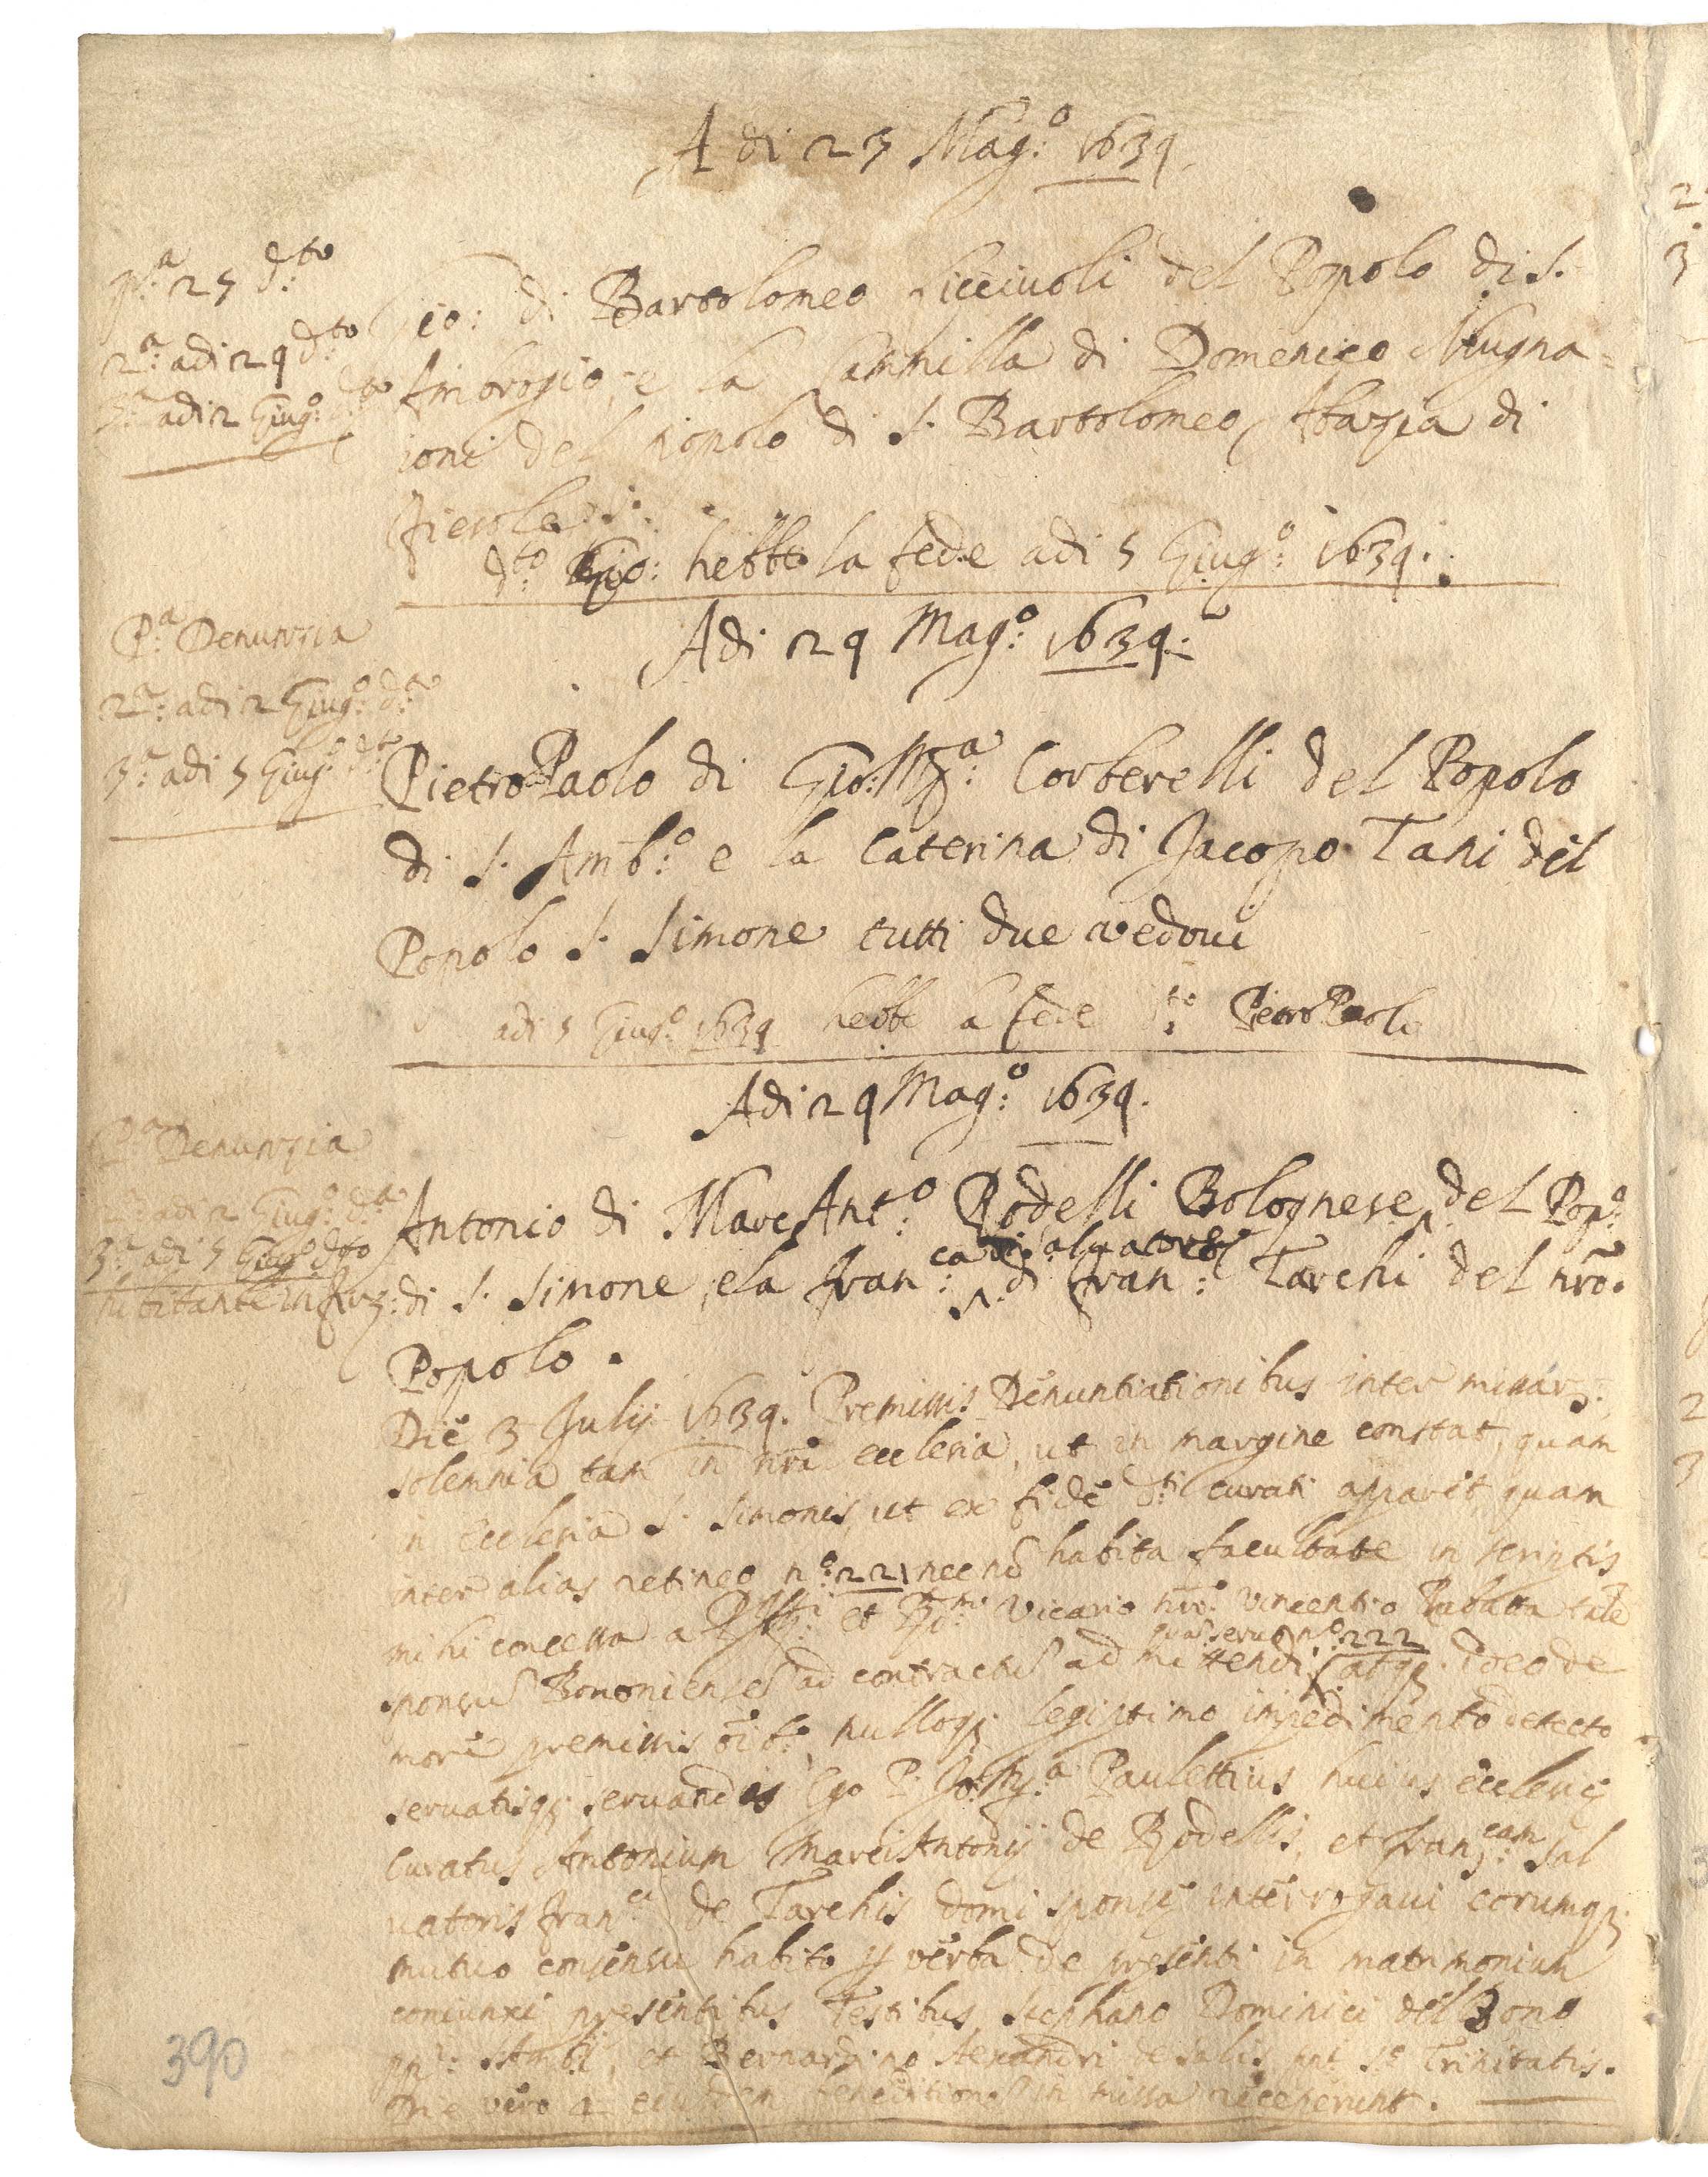 Adi 23 Mag:o 1639
P:a 25 d:to
2:a adi 29 d:to
3:a adi 2 Giug:o d:to
Gio: di Bartolomeo Licciuoli del Popolo di S.
Ambrogio, e la Cammilla di Domenico Mugna=
ioni del popolo di S. Bartolomeo Abazia di
Fiesole
d:to Gio: hebbe la fede adi 5 Giug:o 1639.
Adi 29 Mag:o 1639.
P:a Denunzia
2:a adi 2 Giug:o d:o
3:a adi 5 Giug:o d:to
Pietro Paolo di Gio: Bĩa: Corberelli del Popolo
di S. Amb:o e la Caterina di Jacopo Tani del
Popolo S. Simone tutti due vedoui
adi 5 Giug:o 1639 hebbe la fede d:to Pietro Paolo
Adi 29 Mag:o 1639.
P:a Denunzia
2:a adi 2 Giug:o d:o
3:a adi 5 Giug:o d:to
habitante in Firz:
Antonio di MarcAnt:o Rodelli Bolognese del Pop:o
di S. Simone, e la Fran:ca di Saluatore di Fran: Tarchi del nrõ.
Popolo.
Die 3 Julij 1639. Premissis Denuntiationibus inter missar:
solemnia tam in nrã ecclesia, ut in margine constat, quam
in Ecclesia S. Simonis, ut ex fide d:ti curati apparet, quam
inter alias retineo n:o 221 nec nõ habita facultate in scriptis
mihi concessa a et Vicario nrõ Vincentio Rabatta
sponsũ Bononiensẽ ad contractũ admittendi quã seruo n:o 222 atq; ideo de
more premissis oĩb:, nulloq; legiptimo impedimento detecto
seruatisq; seruandis Ego P. Jo: Bĩa Paulettius huius ecclesie
Curatus Antonium MarciAntonij de Rodellis, et Fran:cam Sal
uatoris Fran:ci de Tarchis domi sponse interrogaui eorumq;
mutuo consensu habito p verba de presenti in matrimonium
coniunxi presentibus Testibus Stephano Dominici del Bono
pp:li S Ambi, et Bernardino Alexandri de Salis ppli S:e Trinitatis.
Die vero 4 eiusdem benedictionẽ in missa receperunt.
390